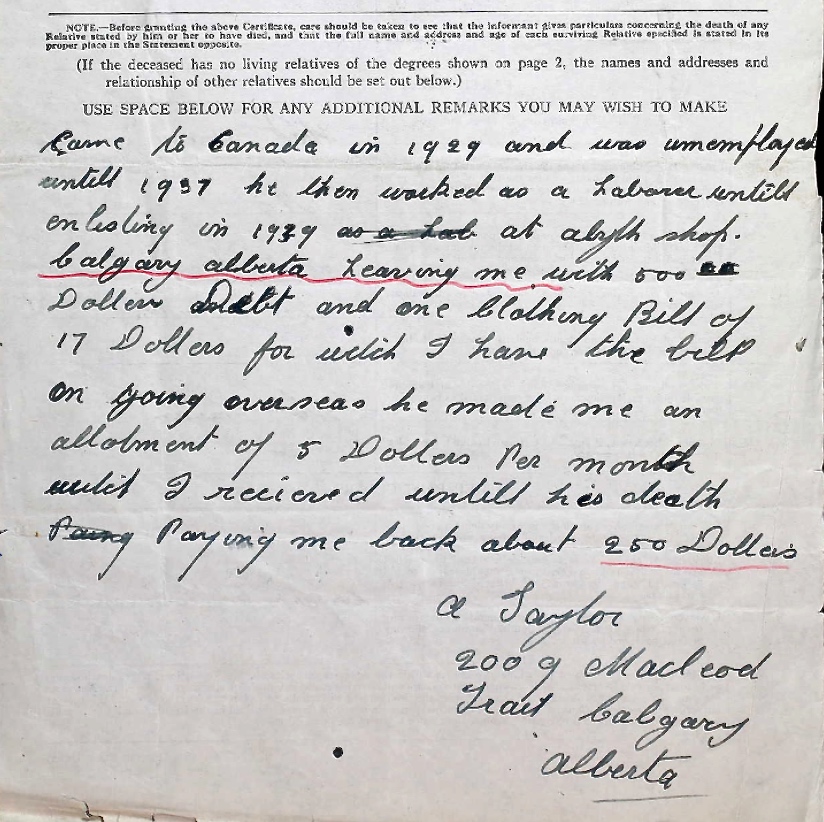 NOTE.—Before granting the above Certificate, care should be taken to see that the informant gives particulars concerning the death of any
Relative stated by him or her to have died, and that the full name and address and age of each surviving Relative specified is stated in its
proper place in the Statement opposite.
(If the deceased has no living relatives of the degrees shown on page 2, the names and addresses and
relationship of other relatives should be set out below.)
USE SPACE BELOW FOR ANY ADDITIONAL REMARKS YOU MAY WISH TO MAKE
Came to Canada in 1929 and was umemployed
untill 1937 he then worked as a Laborer untill
enlisting in 1939 as a Lab at alyth shop.
Calgary alberta Leaving me with 500
Dollers Debt and one Clothing Bill of
17 Dollers for witch I have the bill
on going overseas he made me an
allotment of 5 Dollers Per month
witch I recieved untill his death
Paing Paying me back about 250 Dollers
a Taylor
2009 Macleod
Trail Calgary
alberta